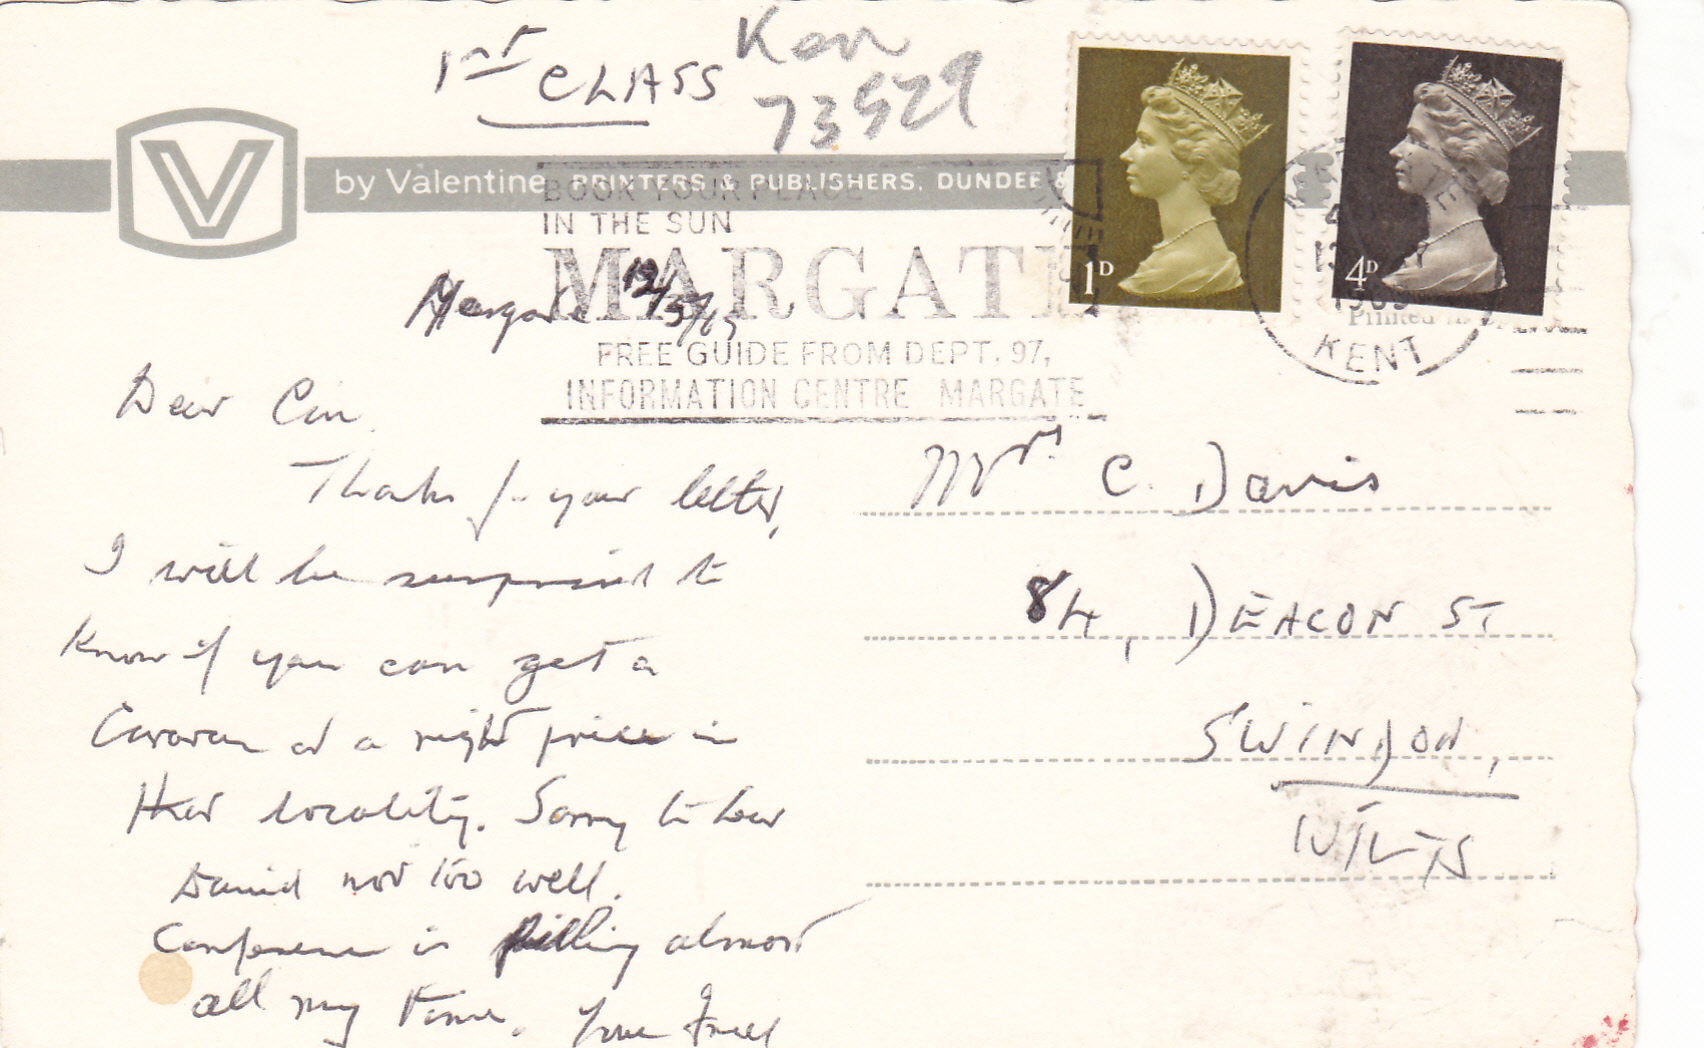 1st CLASS
Ken
73529
V
by Valentine PRINTERS & PUBLISHERS, DUNDEE &
BOOK YOUR PLACE
IN THE SUN
MARGATE
FREE GUIDE FROM DEPT. 97,
INFORMATION CENTRE MARGATE
1D
4D
KENT
Printed in
Margate 12/5/69
Dear Con,
Thanks for your letter,
I will be surprised to
know if you can get a
Caravan at a right price in
that locality. Sorry to hear
David not too well.
Conference is filling almost
all my time. Your Fred
Mrs. C. Davis
84, DEACON ST
SWINDON,
WILTS